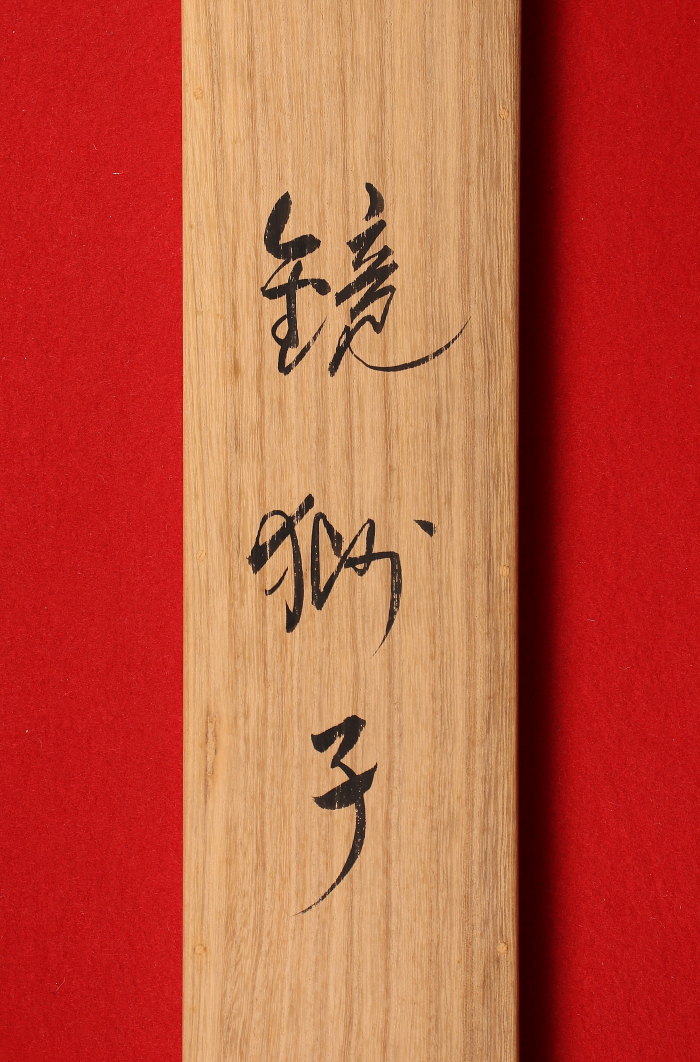 鏡獅子